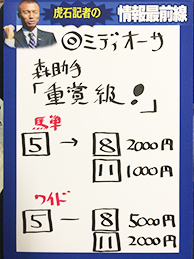 虎石記者の
情報最前線
◎ミディオーサ
森助手
「重賞級!」
馬単
5 → 8 2000円
11 1000円
ワイド
5 − 8 5000円
11 2000円